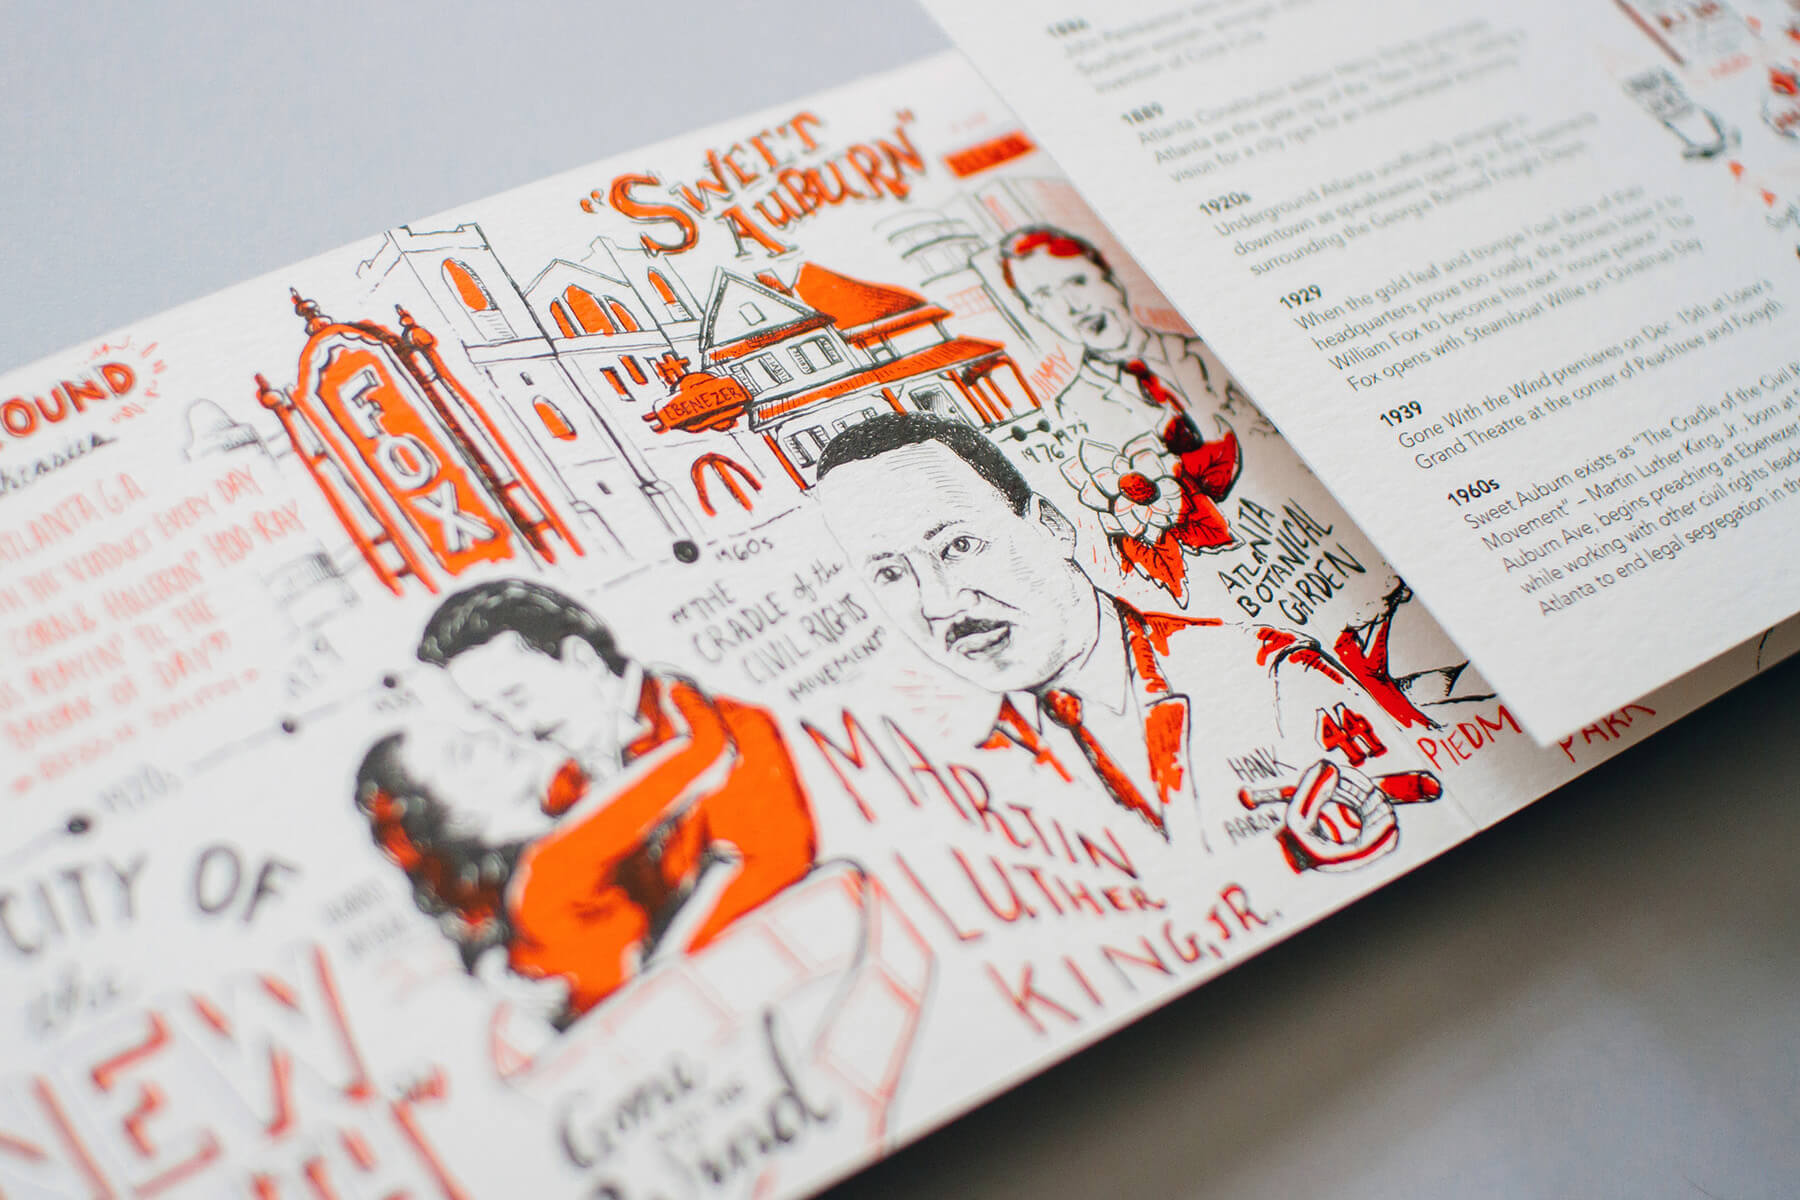 "SWEET
AUBURN"
OUND
FOX
EBENEZER
JIMMY
1974
1976
1960s
"THE
CRADLE of the
CIVIL RIGHTS
MOVEMENT"
ATLANTA
BOTANICAL
GARDEN
ATLANTA GA
THE VIADUCT EVERY DAY
HOLLERIN' HOO-RAY
PLAYIN' TIL THE
BREAK OF DAY"
1929
1920s
MARTIN
LUTHER
KING, JR.
HANK
AARON
44
PIEDM
PARK
CITY OF
the
NEW
Gone
Wind
1886
invention of Coca-Cola
1889
Atlanta Constitution editor Henry Grady promotes
Atlanta as the gate city of the "New South," casting a
vision for a city ripe for an industrialized economy
1920s
Underground Atlanta unofficially emerges
downtown as speakeasies open up in the basements
surrounding the Georgia Railroad Freight Depot
1929
When the gold leaf and trompe l'oeil skies of their
headquarters prove too costly, the Shriners lease it to
William Fox to become his next "movie palace." The
Fox opens with Steamboat Willie on Christmas Day
1939
Gone With the Wind premieres on Dec. 15th at Loew's
Grand Theatre at the corner of Peachtree and Forsyth
1960s
Sweet Auburn exists as "The Cradle of the Civil R
Movement" – Martin Luther King, Jr., born at 5
Auburn Ave, begins preaching at Ebenezer
while working with other civil rights leade
Atlanta to end legal segregation in the